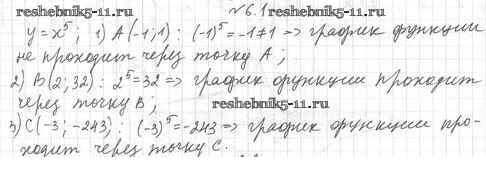 reshebnik5-11.ru № 6.1
y = x⁵; 1) A(-1; 1): (-1)⁵ = -1 ≠ 1 => график функции
не проходит через точку A;
2) B(2; 32): 2⁵ = 32 => график функции проходит
через точку B; reshebnik5-11.ru
3) C(-3; -243): (-3)⁵ = -243 => график функции про-
ходит через точку C.
reshebnik5-11.ru